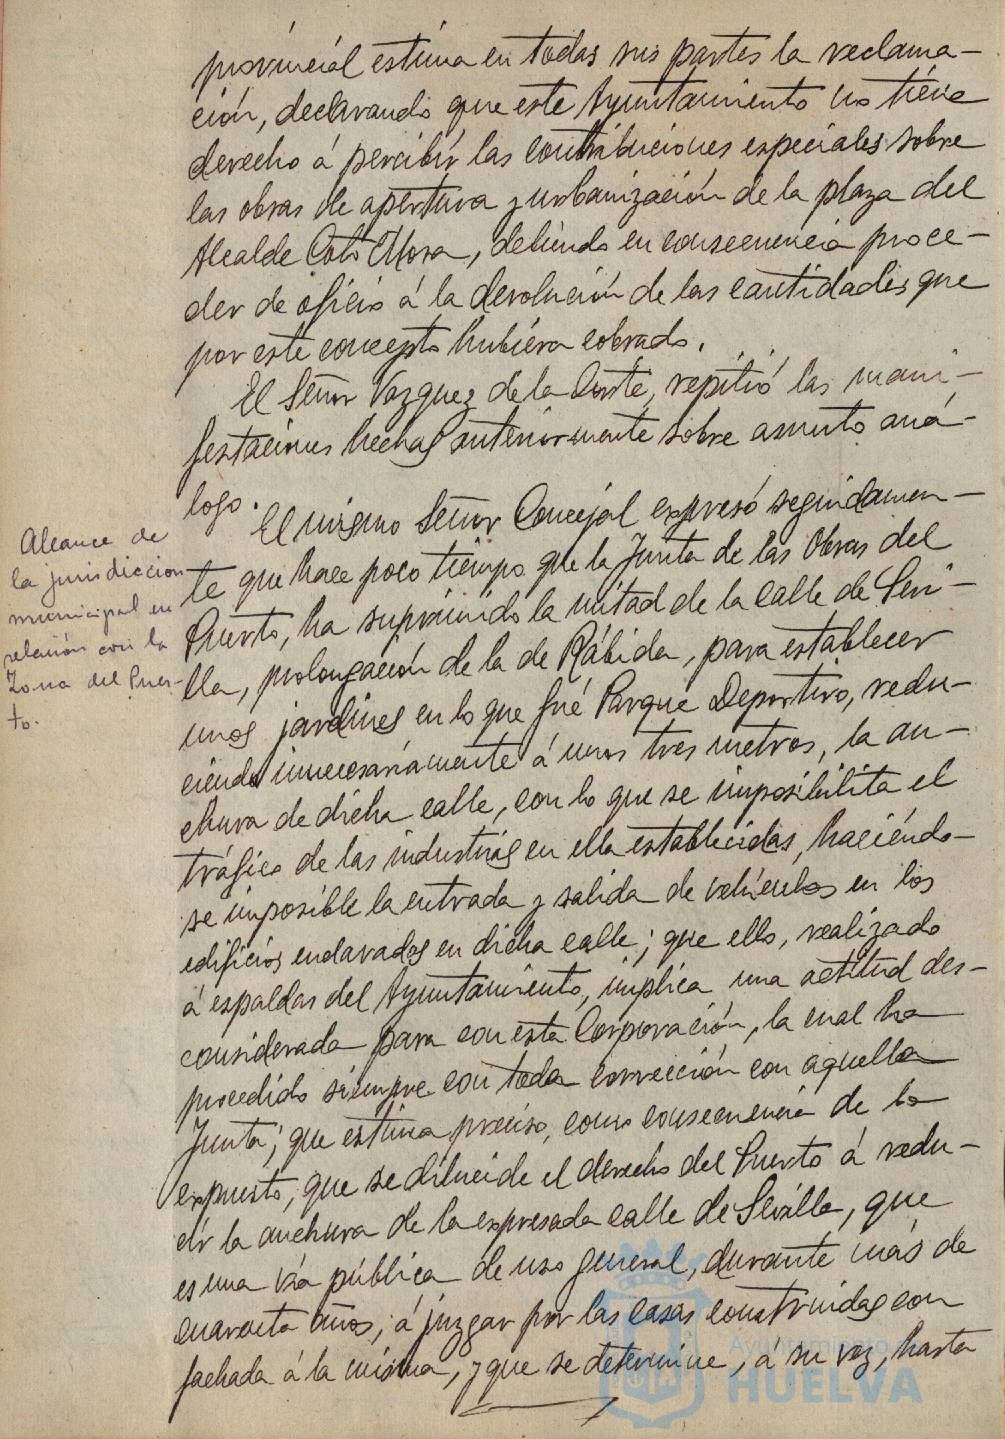 provincial estima en todas sus partes la reclama-
ción, declarando que este Ayuntamiento no tiene
derecho á percibir las contribuciones especiales sobre
las obras de apertura y urbanización de la plaza del
Alcalde Coto Mora, debiendo en consecuencia proce-
der de oficio á la devolución de las cantidades que
por este concepto hubiera cobrado.
El Señor Vazquez de la Corte, repitió las mani-
festaciones hechas anteriormente sobre asunto aná-
logo.
Alcance de
la jurisdiccion
municipal en
relación con la
Zona del Puer-
to.
El mismo Señor Concejal expresó seguidamen-
te que hace poco tiempo que la Junta de las Obras del
Puerto, ha suprimido la mitad de la calle de Sevi-
lla, prolongación de la de Rábida, para establecer
unos jardines en lo que fué Parque Deportivo, redu-
ciendo innecesariamente á unos tres metros, la an-
chura de dicha calle, con lo que se imposibilita el
tráfico de las industrias en ella establecidas, haciéndo-
se imposible la entrada y salida de vehículos en los
edificios enclavados en dicha calle; que ello, realizado
á espaldas del Ayuntamiento, implica una actitud des-
considerada para con esta Corporación, la cual ha
procedido siempre con toda corrección con aquella
Junta; que estima preciso, como consecuencia de lo
expuesto, que se dilucide el derecho del Puerto á redu-
cir la anchura de la expresada calle de Sevilla, que
es una vía pública de uso general, durante más de
cuarenta años, á juzgar por las casas construidas con
fachada á la misma, y que se determine, á su vez, hasta
Ayuntamiento de
HUELVA